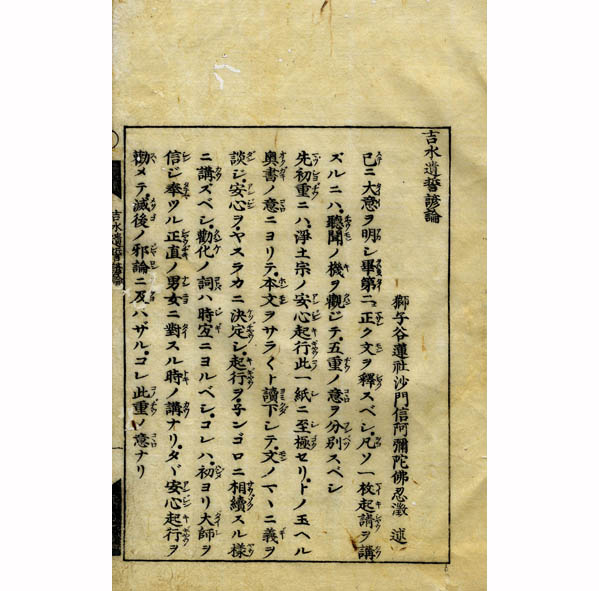 吉水遺誓諺論
獅子谷蓮社沙門信阿彌陀佛忍澂 述
已ニ大意ヲ明シ畢第二正ク文ヲ釋スベシ凡ソ一枚起請ヲ講
ズルニハ聽聞ノ機ヲ觀ジテ五重ノ意ヲ分別スベシ
先初重ニハ淨土宗ノ安心起行此一紙ニ至極セリトノ玉ヘル
奥書ノ意ニヨリテ本文ヲサラ〱ト讀下シテ文ノマヽニ義ヲ
談シ安心ヲヤスラカニ決定シ起行ヲ子ンゴロニ相續スル樣
ニ講ズベシ勸化ノ詞ハ時宜ニヨルベシコレハ初ヨリ大師ヲ
信ジ奉ツル正直ノ男女ニ對スル時ノ講ナリタヾ安心起行ヲ
勸メテ滅後ノ邪論ニ及ハザルコレ此重ノ意ナリ
吉水遺誓諺論